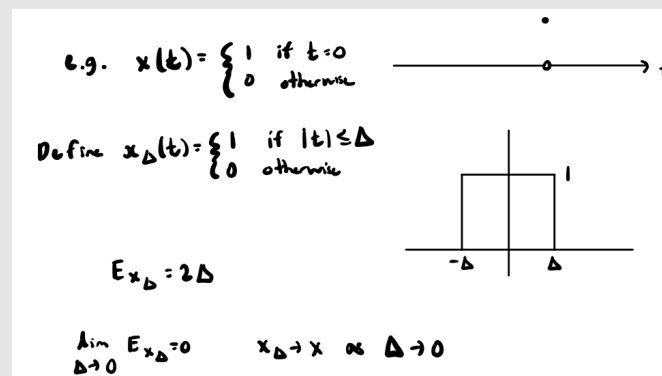 e.g. x(t) = { 1 if t=0
0 otherwise
t
Define x_Δ(t) = { 1 if |t| ≤ Δ
0 otherwise
1
-Δ Δ
E_{x_Δ} = 2Δ
lim_{Δ→0} E_{x_Δ} = 0 x_Δ → x as Δ → 0